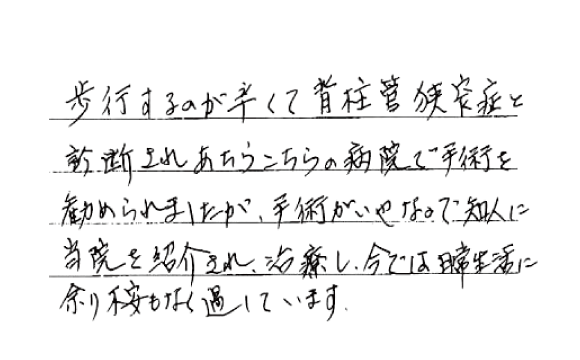 歩行するのが辛くて脊柱管狭窄症と
診断されあちらこちらの病院で手術を
勧められましたが、手術がいやなので知人に
当院を紹介され、治療し、今では日常生活に
余り不安もなく過しています.